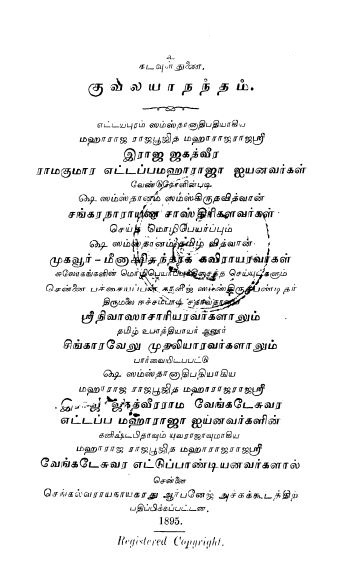 உ
கடவுள் துணை.
குவலயாநந்தம்.
எட்டயபுரம் ஸம்ஸ்தானாதிபதியாகிய
மஹாராஜ ராஜபூஜித மஹாராஜராஜஸ்ரீ
இராஜ ஜகத்வீர
ராமகுமார எட்டப்பமஹாராஜா ஐயனவர்கள்
வேண்டுகோளின்படி
ஷை ஸம்ஸ்தானம் ஸம்ஸ்கிருதவித்வான்
சங்கரநாராயண சாஸ்திரிகளவர்கள்
செய்த மொழிபெயர்பபும்
ஷை ஸம்ஸ்தானம் தமிழ் வித்வான்
முகவூர்-மீனாட்சிசுந்தரக் கவிராயரவர்கள்
சுலோகங்களின் மொழிபெயர் செய்யுட்களும்
சென்னை பச்சையப்பன் காலீஜ் ஸம்ஸ்கிருதபண்டிதர்
திருமலை ஈச்சம்பாடி
ஸ்ரீநிவாஸாசாரியரவர்களாலும்
தமிழ் உபாத்தியாயர் ஆனூர்
சிங்காரவேலு முதலியாரவர்களாலும்
பார்வையிடப்பட்டு
ஷை ஸம்ஸ்தானாதிபதியாகிய
மஹாராஜ ராஜபூஜித மஹாராஜராஜஸ்ரீ
ஜகத்வீரராம வேங்கடேசுவர
எட்டப்ப மஹாராஜா ஐயனவர்களின்
கனிஷ்டபிதாவும் யுவராஜாவுமாகிய
மஹாராஜ ராஜபூஜித மஹாராஜராஜஸ்ரீ
வேங்கடேசுவர எட்டுப்பாண்டியனவர்களால்
சென்னை
செங்கல்வராயநாயகரது ஆர்பனேஜ் அச்சுக்கூடத்திற்
பதிப்பிக்கப்பட்டன.
1895.
Registered Copyright.